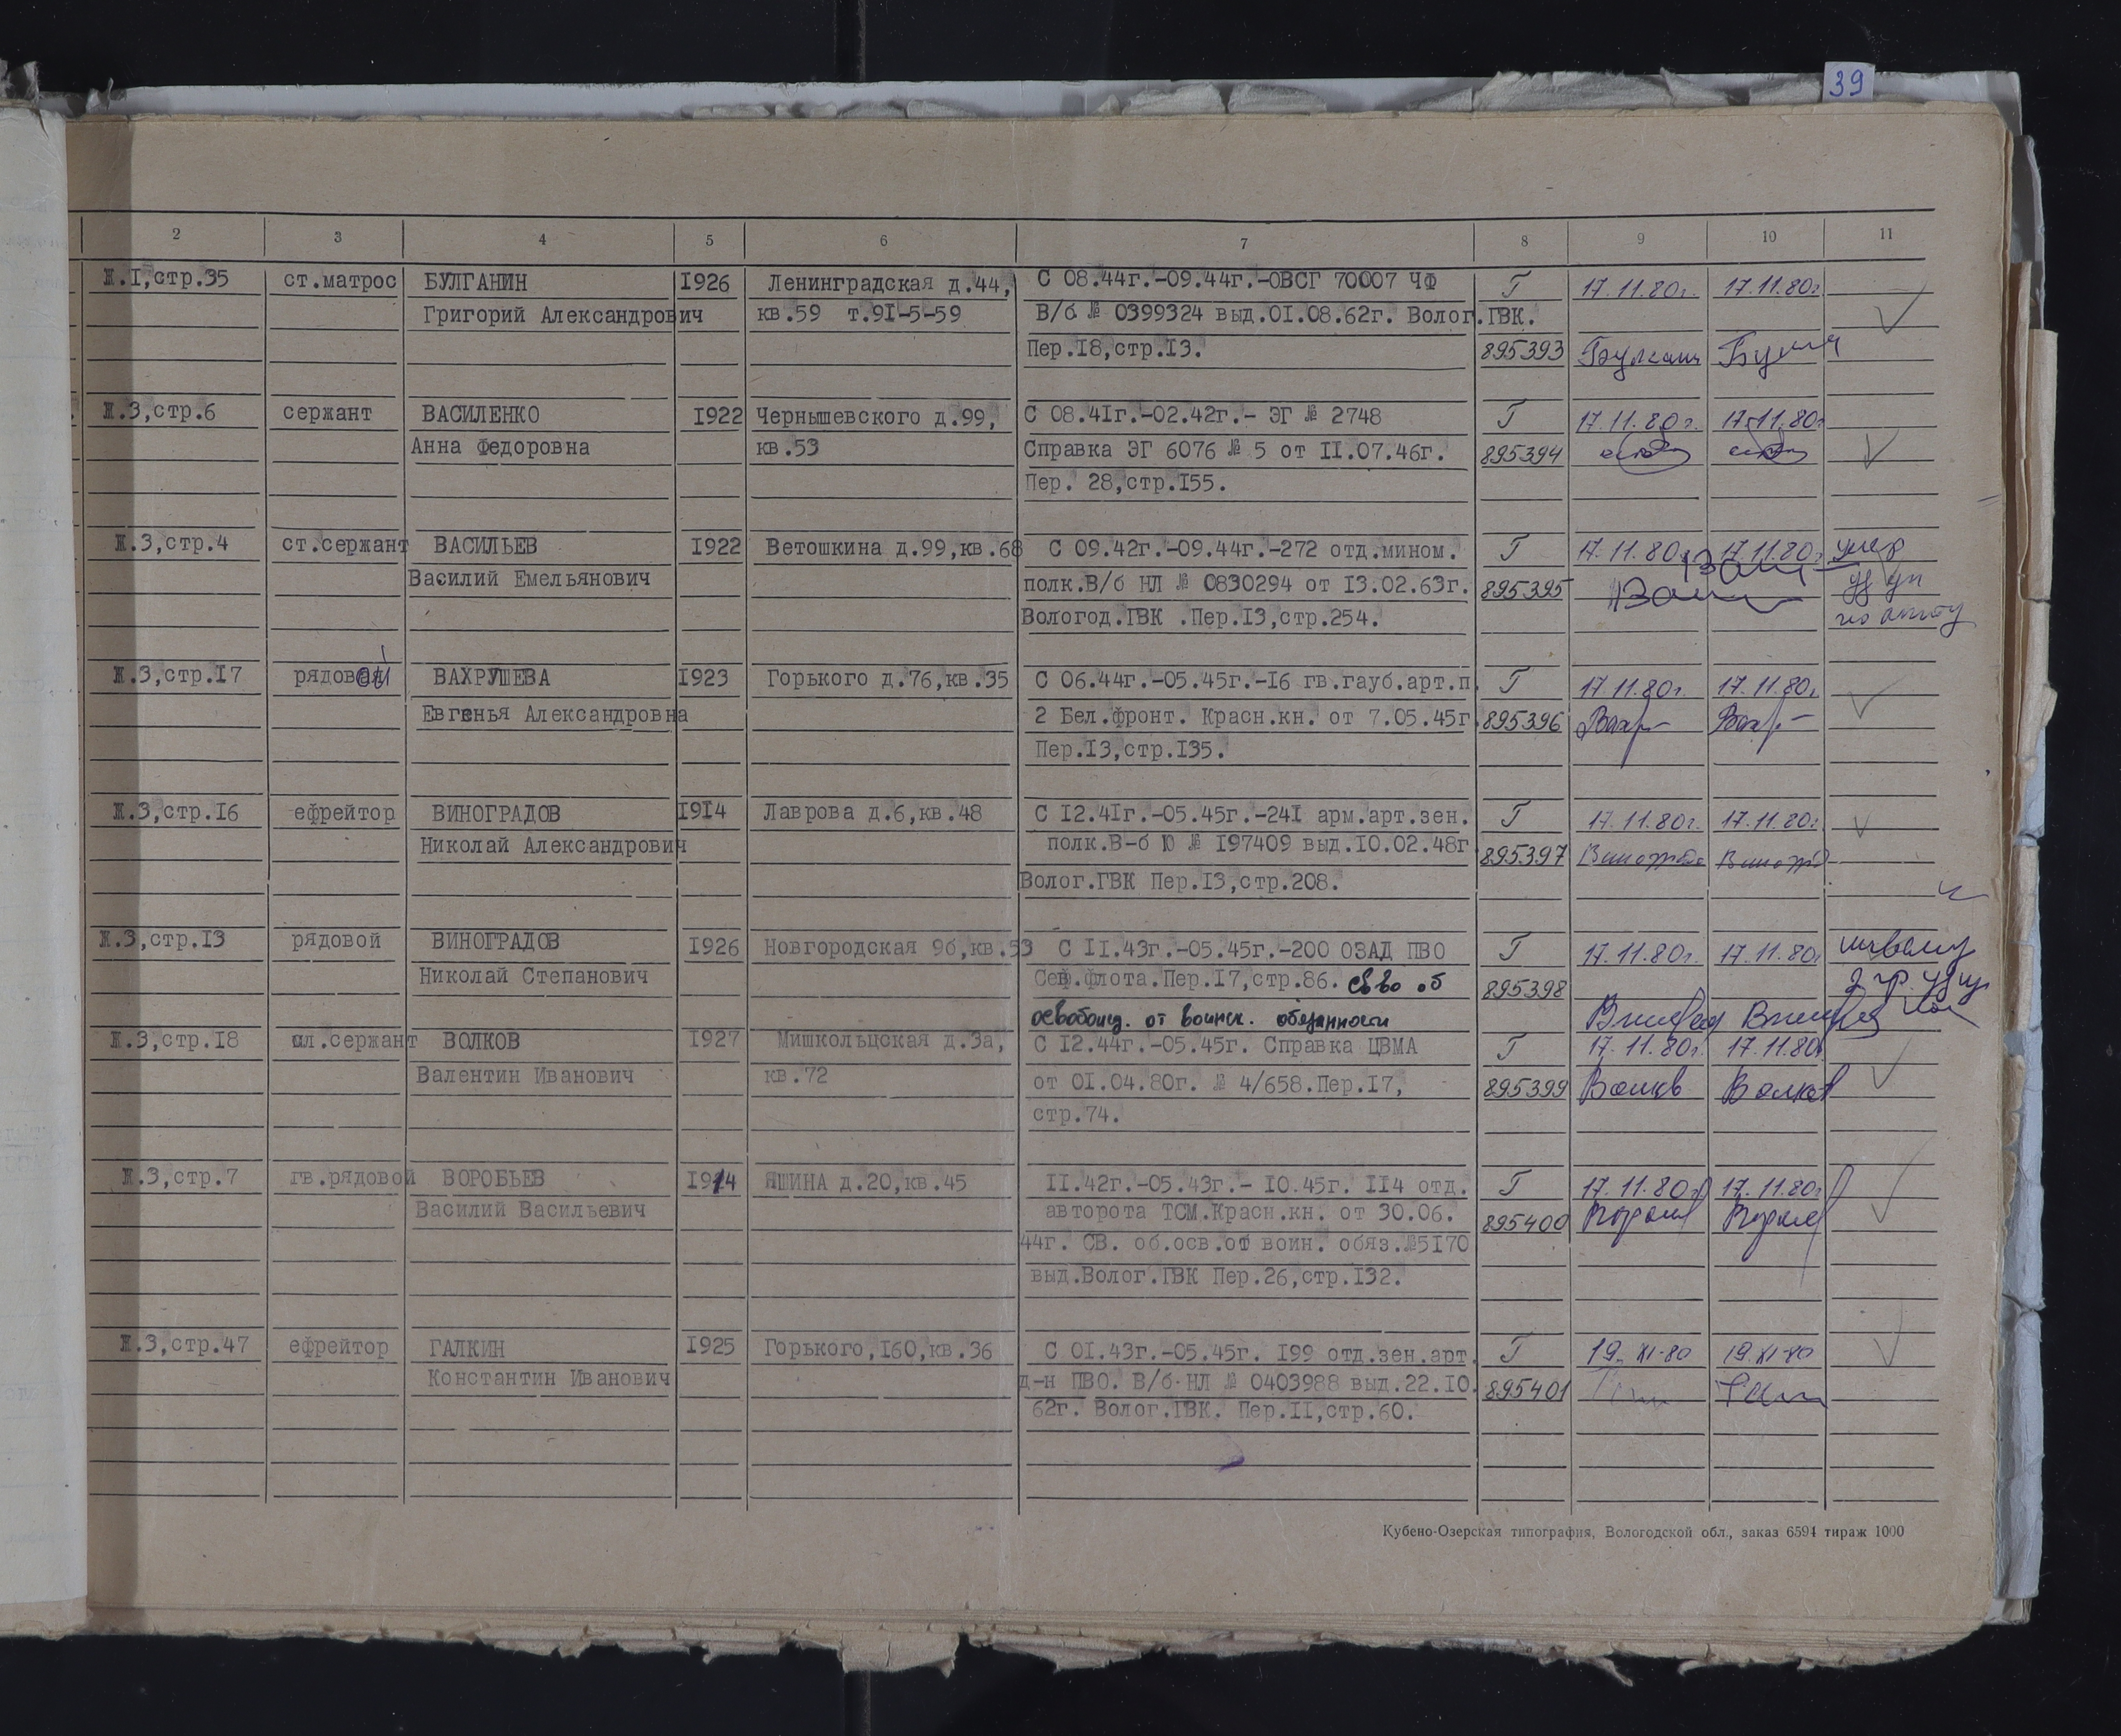 39
2 3 4 5 6 7 8 9 10 11
Ж.I,стр.35 ст.матрос БУЛГАНИН I926 Ленинградская д.44, С 08.44г.-09.44г.-ОВСГ 70007 ЧФ Г 17.11.80г. 17.11.80г.
Григорий Александрович кв.59 т.9I-5-59 В/б № 0399324 выд.0I.08.62г. Волог.ГВК.
Пер.I8,стр.I3. 895393
Ж.3,стр.6 сержант ВАСИЛЕНКО I922 Чернышевского д.99, С 08.4Iг.-02.42г.- ЭГ № 2748 Г 17.11.80г. 17.11.80г
Анна Федоровна кв.53 Справка ЭГ 6076 № 5 от II.07.46г. 895394
Пер. 28,стр.I55.
Ж.3,стр.4 ст.сержант ВАСИЛЬЕВ I922 Ветошкина д.99,кв.68 С 09.42г.-09.44г.-272 отд.мином. Г 17.11.80г 17.11.80г умер
Василий Емельянович полк.В/б НЛ № 0830294 от I3.02.63г. 895395 уд ун
Вологод.ГВК .Пер.I3,стр.254. по акту
Ж.3,стр.I7 рядовой ВАХРУШЕВА I923 Горького д.76,кв.35 С 06.44г.-05.45г.-I6 гв.гауб.арт.п. Г 17.11.80г. 17.11.80г
Евгенья Александровна 2 Бел.фронт. Красн.кн. от 7.05.45г 895396 Вахр Вахр
Пер.I3,стр.I35.
Ж.3,стр.I6 ефрейтор ВИНОГРАДОВ I9I4 Лаврова д.6,кв.48 С I2.4Iг.-05.45г.-24I арм.арт.зен. Г 17.11.80г. 17.11.80г
Николай Александрович полк.В-б Ю № I97409 выд.I0.02.48г 895397
Волог.ГВК Пер.I3,стр.208.
Ж.3,стр.I3 рядовой ВИНОГРАДОВ I926 Новгородская 9б,кв.53 С II.43г.-05.45г.-200 ОЗАД ПВО Г 17.11.80г. 17.11.80г инвалид
Николай Степанович Сев.флота.Пер.I7,стр.86. св-во об 895398 2 гр.
освобожд. от воинск. обязанности
Ж.3,стр.I8 мл.сержант ВОЛКОВ I927 Мишкольцская д.3а, С I2.44г.-05.45г. Справка ЦВМА Г 17.11.80г. 17.11.80г
Валентин Иванович кв.72 от 0I.04.80г. № 4/658.Пер.I7, 895399 Волков Волков
стр.74.
Ж.3,стр.7 гв.рядовой ВОРОБЬЕВ I914 ЯШИНА д.20,кв.45 II.42г.-05.43г.- I0.45г. II4 отд. Г 17.11.80г 17.11.80г
Василий Васильевич авторота ТСМ.Красн.кн. от 30.06. 895400
44г. СВ. об.осв.от воин. обяз.№5I70
выд.Волог.ГВК Пер.26,стр.I32.
Ж.3,стр.47 ефрейтор ГАЛКИН I925 Горького,I60,кв.36 С 0I.43г.-05.45г. I99 отд.зен.арт. Г 19.XI-80 19.XI-80
Константин Иванович д-н ПВО. В/б НЛ № 0403988 выд.22.I0. 895401
62г. Волог.ГВК. Пер.II,стр.60.
Кубено-Озерская типография, Вологодской обл., заказ 6594 тираж 1000